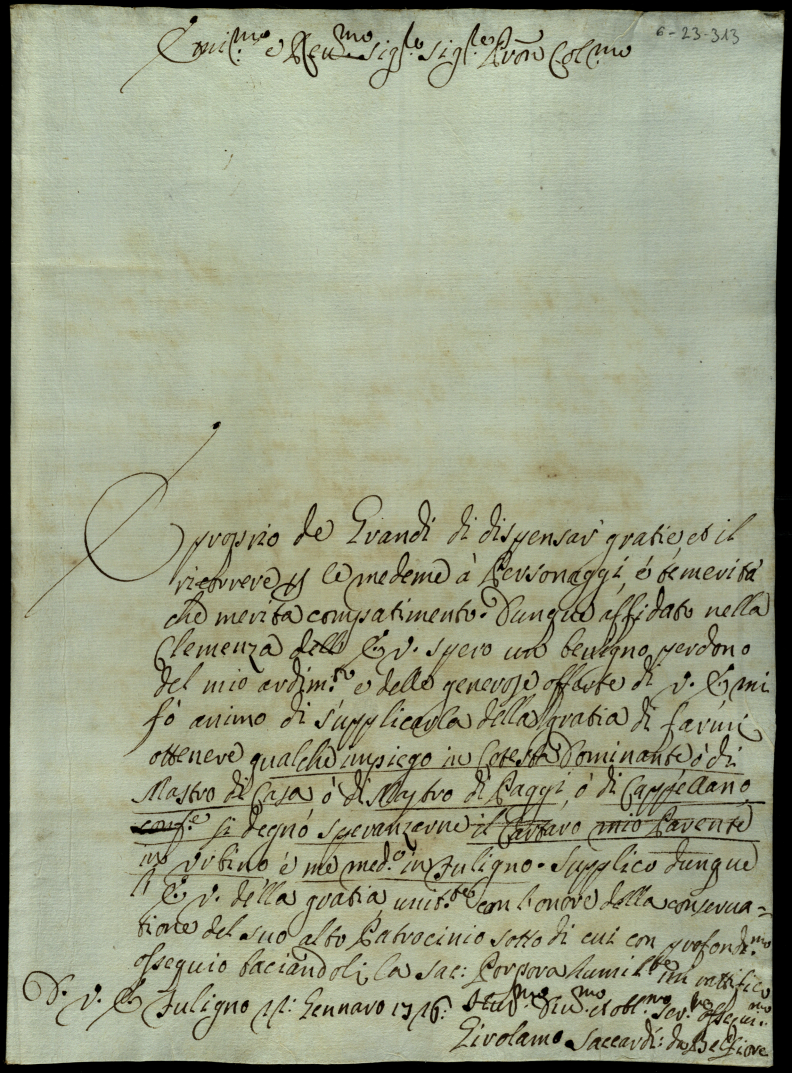 6-23-313
Emi.mo e Reu.mo Sig.re Sig.re Pron Col.mo
È proprio de Grandi di dispensar gratie et il
ricorrere p le medeme à Personaggi, é temerità
che merita compatimento. Dunque affidato nella
Clemenza dell E. V. spero un benigno perdono
del mio ardim.to e delle generose offerte di V. E. mi
fò animo di supplicarla della gratia di farmi
ottenere qualche impiego in Cotesta Dominante ò di
Mastro di Casa ò di Mastro di Paggi, ò di Cappellano
conf.e si degnò speranzarne il mio Parente
in Urbino é me med.o in Fuligno. Supplico dunque
l' E. V. della gratia unit.te con l'onore della conserua=
tione del suo alto Patrocinio sotto di cui con profondis.mo
ossequio baciandoli la Sac: Porpora humil.te mi ratifico
D. V. E. Fuligno 11: Gennaro 1716: Hu.mo Diu.mo et obl.mo Ser.re ossequi.mo
Girolamo Saccardi: da Belfiore